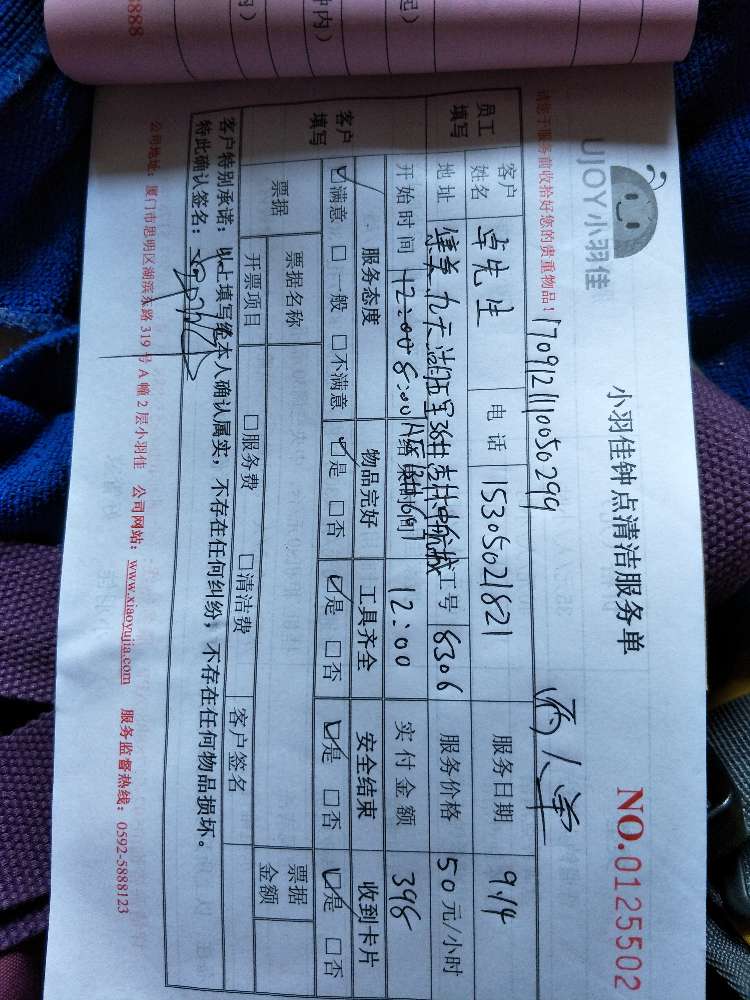 UJOY小羽佳
小羽佳钟点清洁服务单
NO.0125502
请您于服务前收拾好您的贵重物品！
1709121110050299
两人单
员工填写
客户姓名 卓先生 电话 15305021821 服务日期 9.14
地址 工号 8306 服务价格 50元/小时
开始时间 8:00 结束时间 12:00 实付金额 398
客户填写
服务态度 物品完好 工具齐全 安全结束 收到卡片
☑满意 □一般 □不满意 ☑是 □否 ☑是 □否 ☑是 □否 ☑是 □否
票据 票据名称 票据金额
开票项目 □服务费 □清洁费 客户签名
客户特别承诺：以上填写经本人确认属实，不存在任何纠纷，不存在任何物品损坏。
特此确认签名：
公司地址：厦门市思明区湖滨东路319号A幢2层小羽佳 公司网站：www.xiaoyujia.com 服务监督热线：0592-5888123